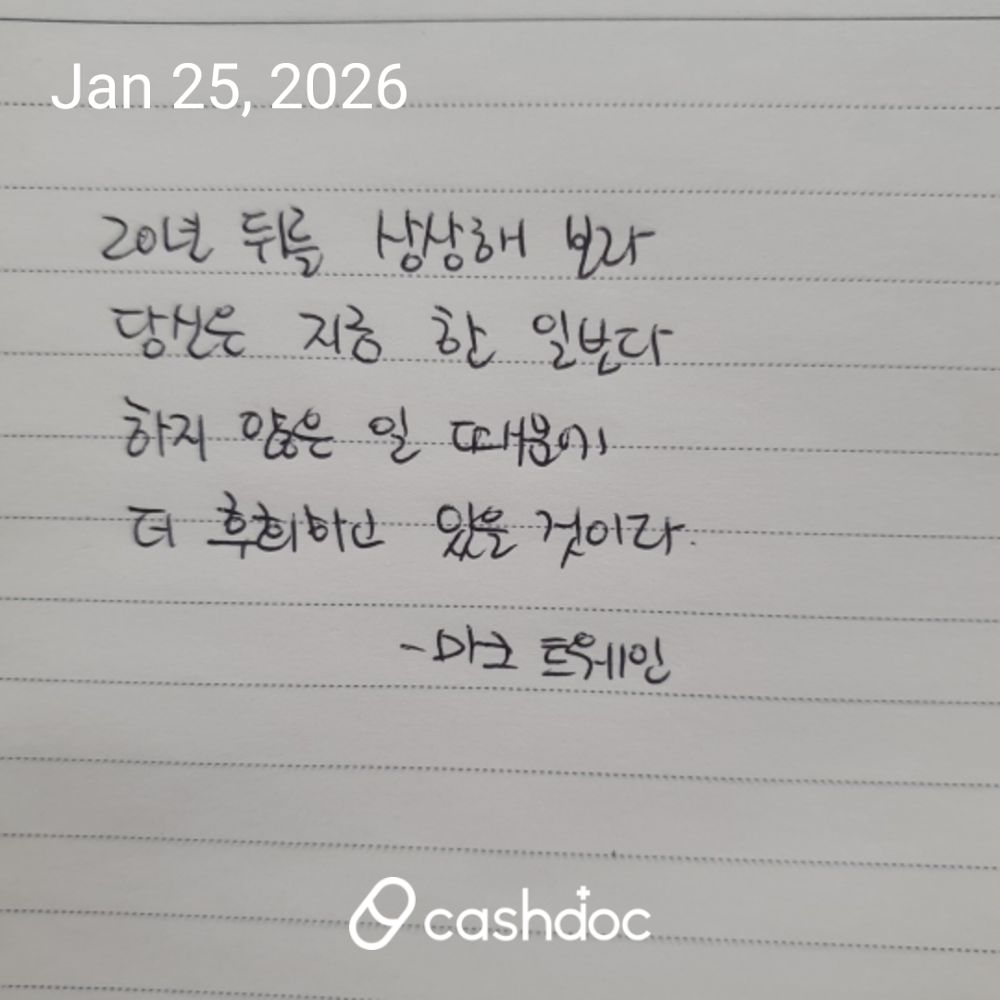 Jan 25, 2026
20년 뒤를 상상해 보라
당신은 지금 한 일보다
하지 않은 일 때문에
더 후회하고 있을 것이라.
-마크 트웨인
cashdoc